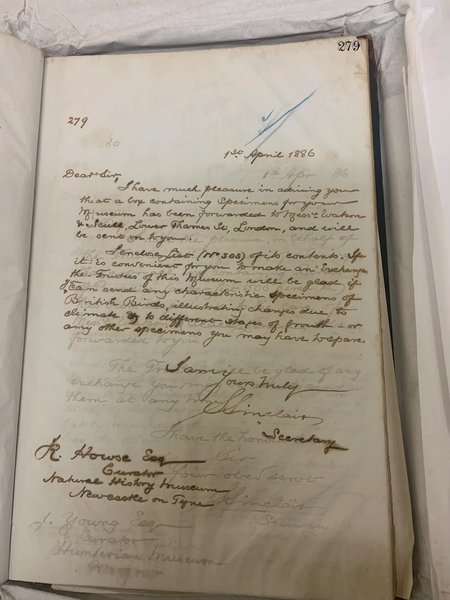 279
279
1st April 1886
1st Apr 86
Dear Sir,
I have much pleasure in advising you
that a box containing Specimens for your
Museum has been forwarded to Messrs. Watson
& Scull, Lower Thames St, London, and will
be sent on to you.
I enclose List (No 303) of its contents. If
it is convenient for you to make an Exchange
the Trustees of this Museum will be glad if
you can send any characteristic Specimens of
British Birds, illustrating changes due to
climate & to different stages of growth - or
any other specimens you may have to spare.
forwarded to you
I am
The be glad of any
yours truly
exchange you may
them at any
S Sinclair
I have the hono
Secretary
Sir
R. Howse Esq
Curator
Your obed servt
Natural History Museum
Sinclair
Newcastle on Tyne
J. Young Esq
Curator
Hunterian Museum